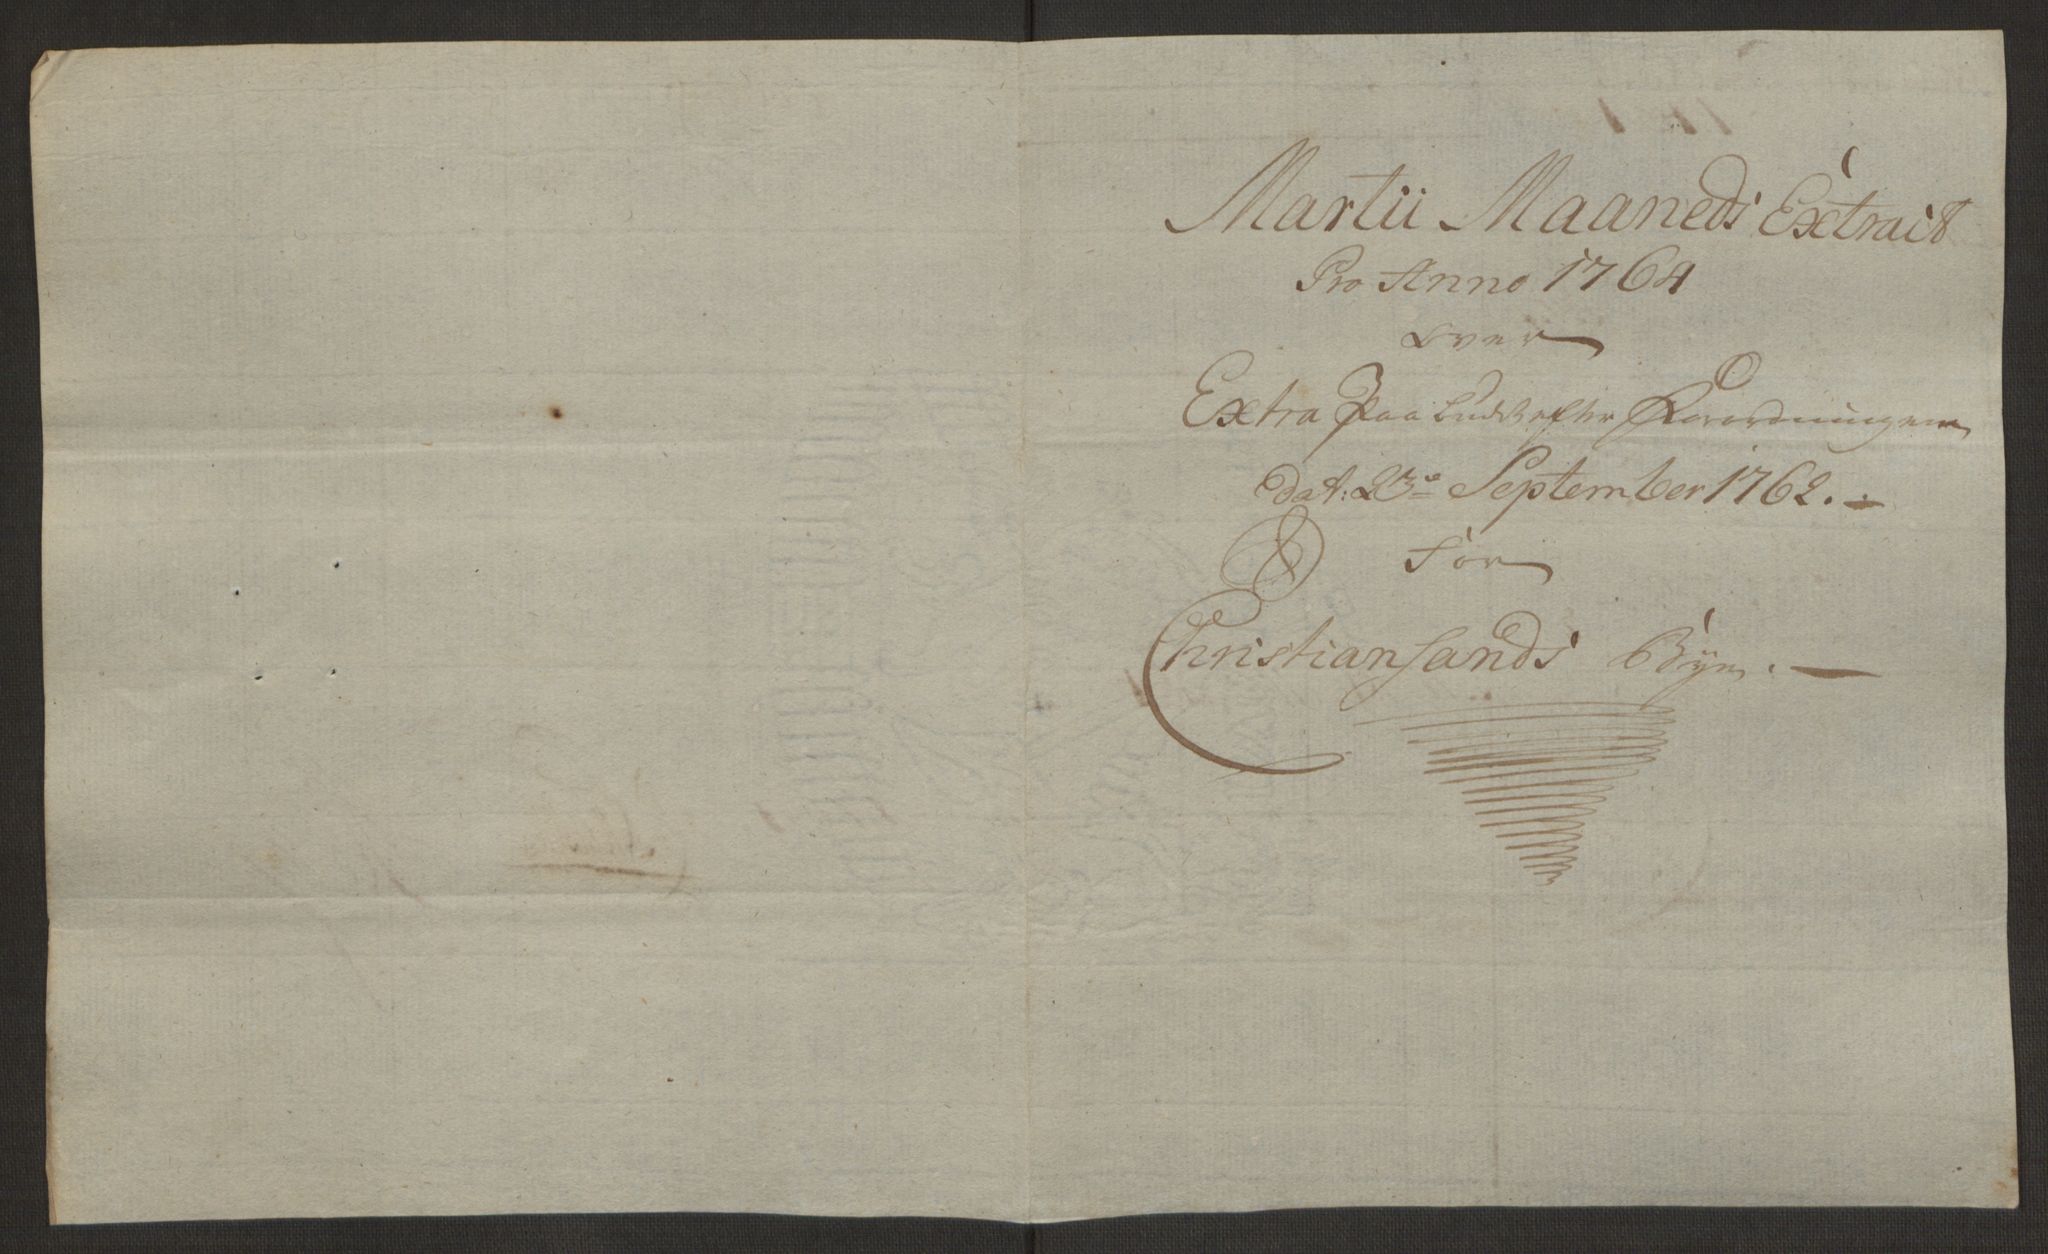 Martii Maaneds Extract
Pro Anno 1764
over
Extra Paabudet efter Forordningen
dat: 23de September 1762. -
for
Christiansands Bye. -